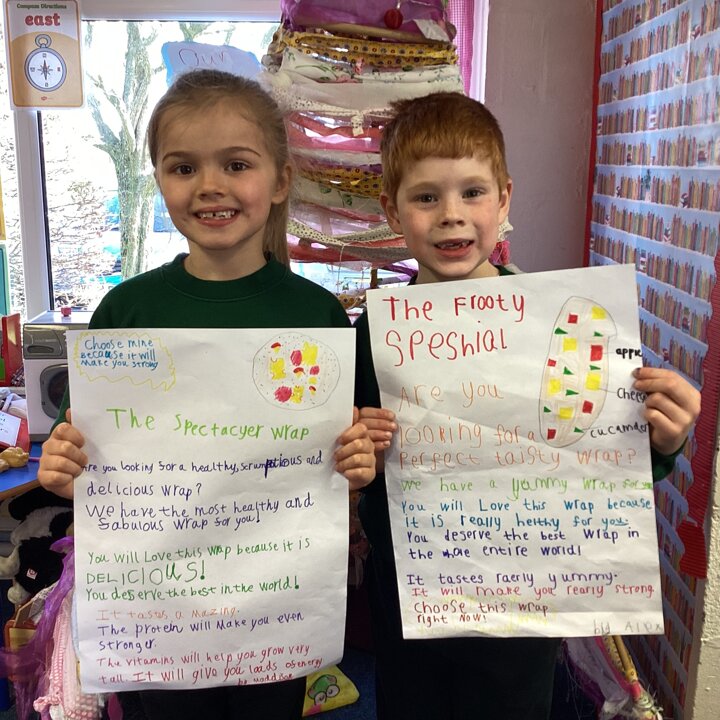 Compass Directions
east
Our
Choose mine
because it will
make you strong
The Spectacyer wrap
Are you looking for a healthy, scrumptious and
delicious wrap?
We have the most healthy and
fabulous wrap for you!
You will Love this wrap because it is
DELICIOUS!
You deserve the best in the world!
It tastes a mazing.
The protein will make you even
stronger.
The vitamins will help you grow very
tall. It will give you loads of energy
by
The Frooty
Speshial
apple
Chees
cucamder
Are you
looking for a
Perfect taisty wrap?
We have a yummy wrap for you
You will Love this wrap because
it is really helthy for you.
You deserve the best wrap in
the whole entire world!
It tastes raerly yummy.
It will make you rearly strong
Choose this wrap
right now!
by